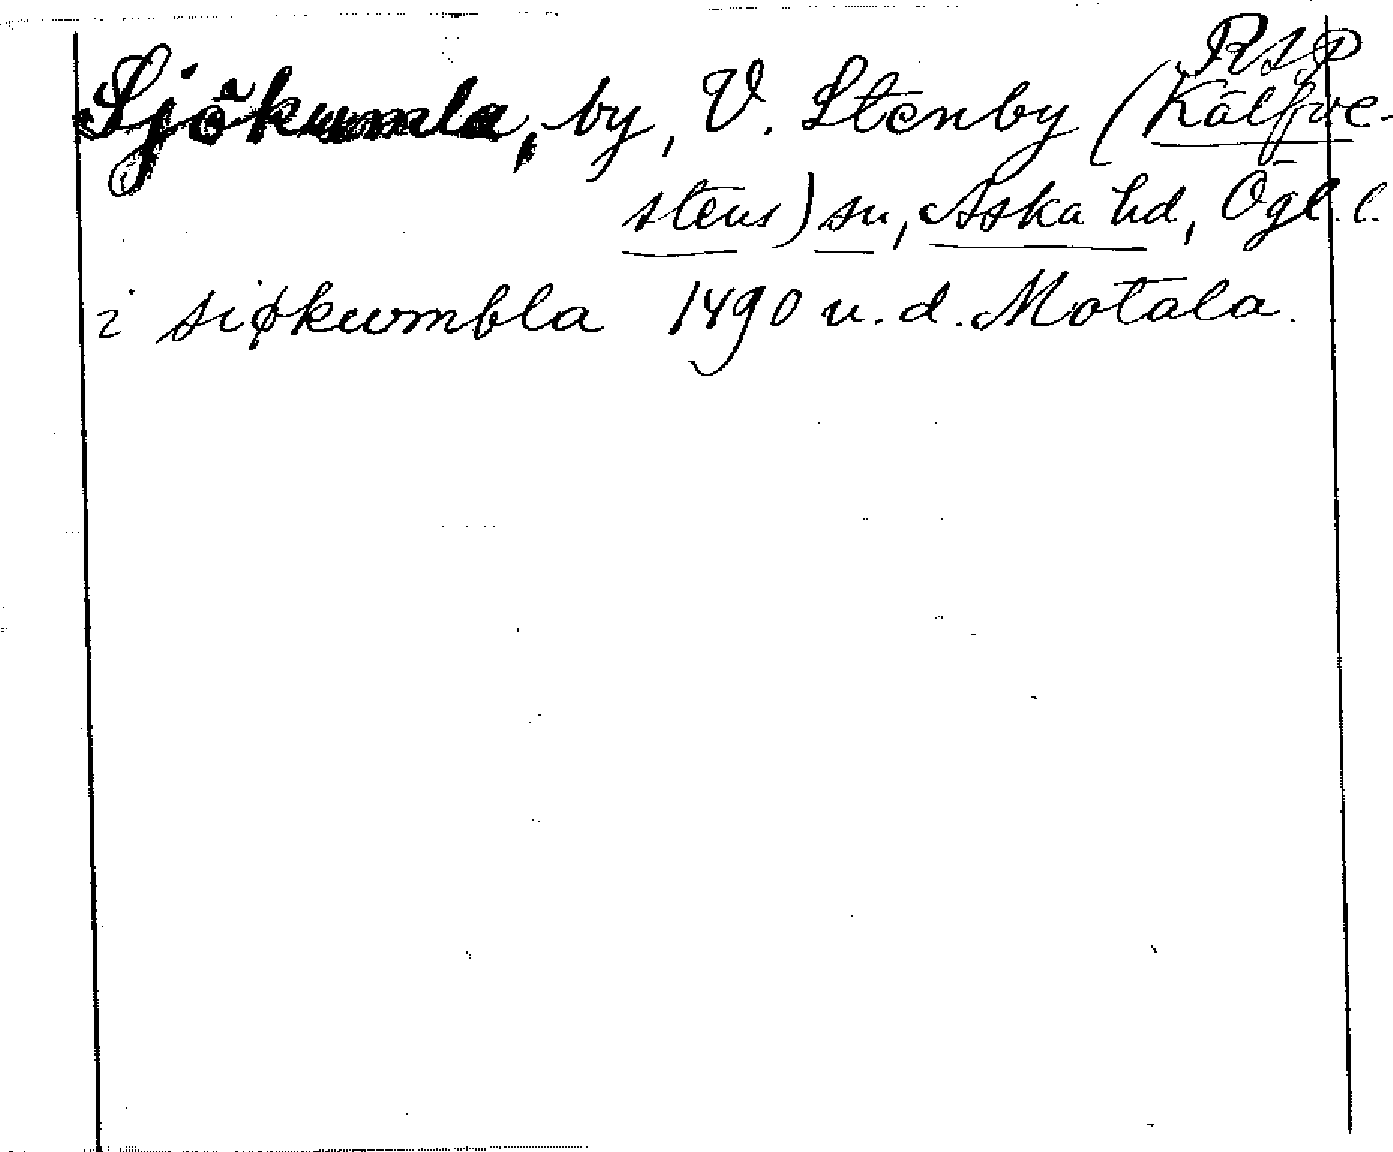 RAP
Sjökumla, by, V. Stenby (Kälfve-
stens) sn, Aska hd, Ögl. l.
i siøkumbla 1490 u. d. Motala.